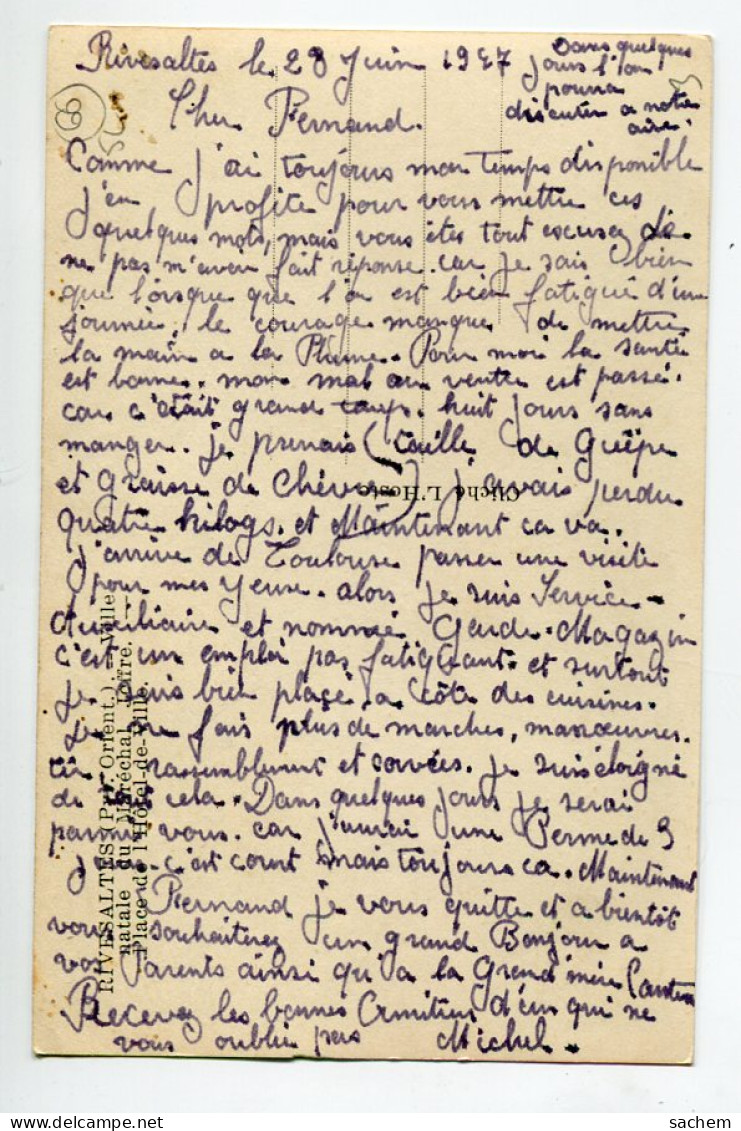 Rivesaltes le 28 Juin 1937
Dans quelques
jours l'on
pourra
discuter a notre
aise.
66
Cher Fernand.
Comme j'ai toujours mon temps disponible
j'en profite pour vous mettre ces
quelques mots, mais vous êtes tout excusez de
ne pas m'avoir fait réponse. car je sais bien
que lorsque que l'on est bien fatigué d'une
journée, le courage manque de mettre
la main a la Plume. Pour moi la santé
est bonne. mon mal au ventre est passé.
car c'était grand temps. huit jours sans
manger. je prenais (taille de Guêpe
et graisse de Chèvre) j'avais perdu
quatre kilogs. et Maintenant ca va.
J'arrive de Toulouse passer une visite
pour mes yeux. alors je suis Service
Auxiliaire et nommé Garde-Magazin
c'est un emploi pas fatiguant et surtout
je suis bien placé. a côté des cuisines.
je ne fais plus de marches, manœuvres.
tir. rassemblement et corvées. je suis éloigné
de cela. Dans quelques jours je serai
parmi vous. car j'aurai une Perme de 3
jours. c'est court mais toujours ca. Maintenant
Fernand je vous quitte et a bientôt
vous souhaiterez un grand Bonjour a
vos Parents ainsi qu'a la Grand'mère
Recevez les bonnes Amitiés d'un qui ne
vous oublie pas Michel.
Cliché L'Hoste
RIVESALTES (Pyr. Orient.). — Ville
natale du Maréchal Joffre. —
Place de l'Hôtel-de-Ville.
sachem